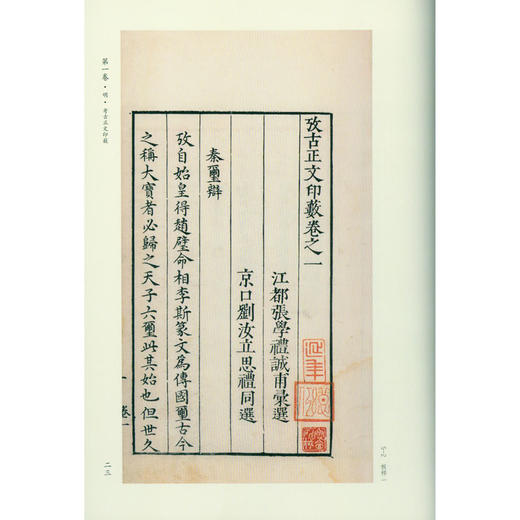 攷古正文印藪卷之一
江都張學禮誠甫彙選
京口劉汝立思禮同選
秦璽辯
攷自始皇得趙璧命相李斯篆文為傳國璽古今
之稱大寶者必歸之天子六璽此其始也但世久
卷一
第一卷·明·考古正文印藪
二三